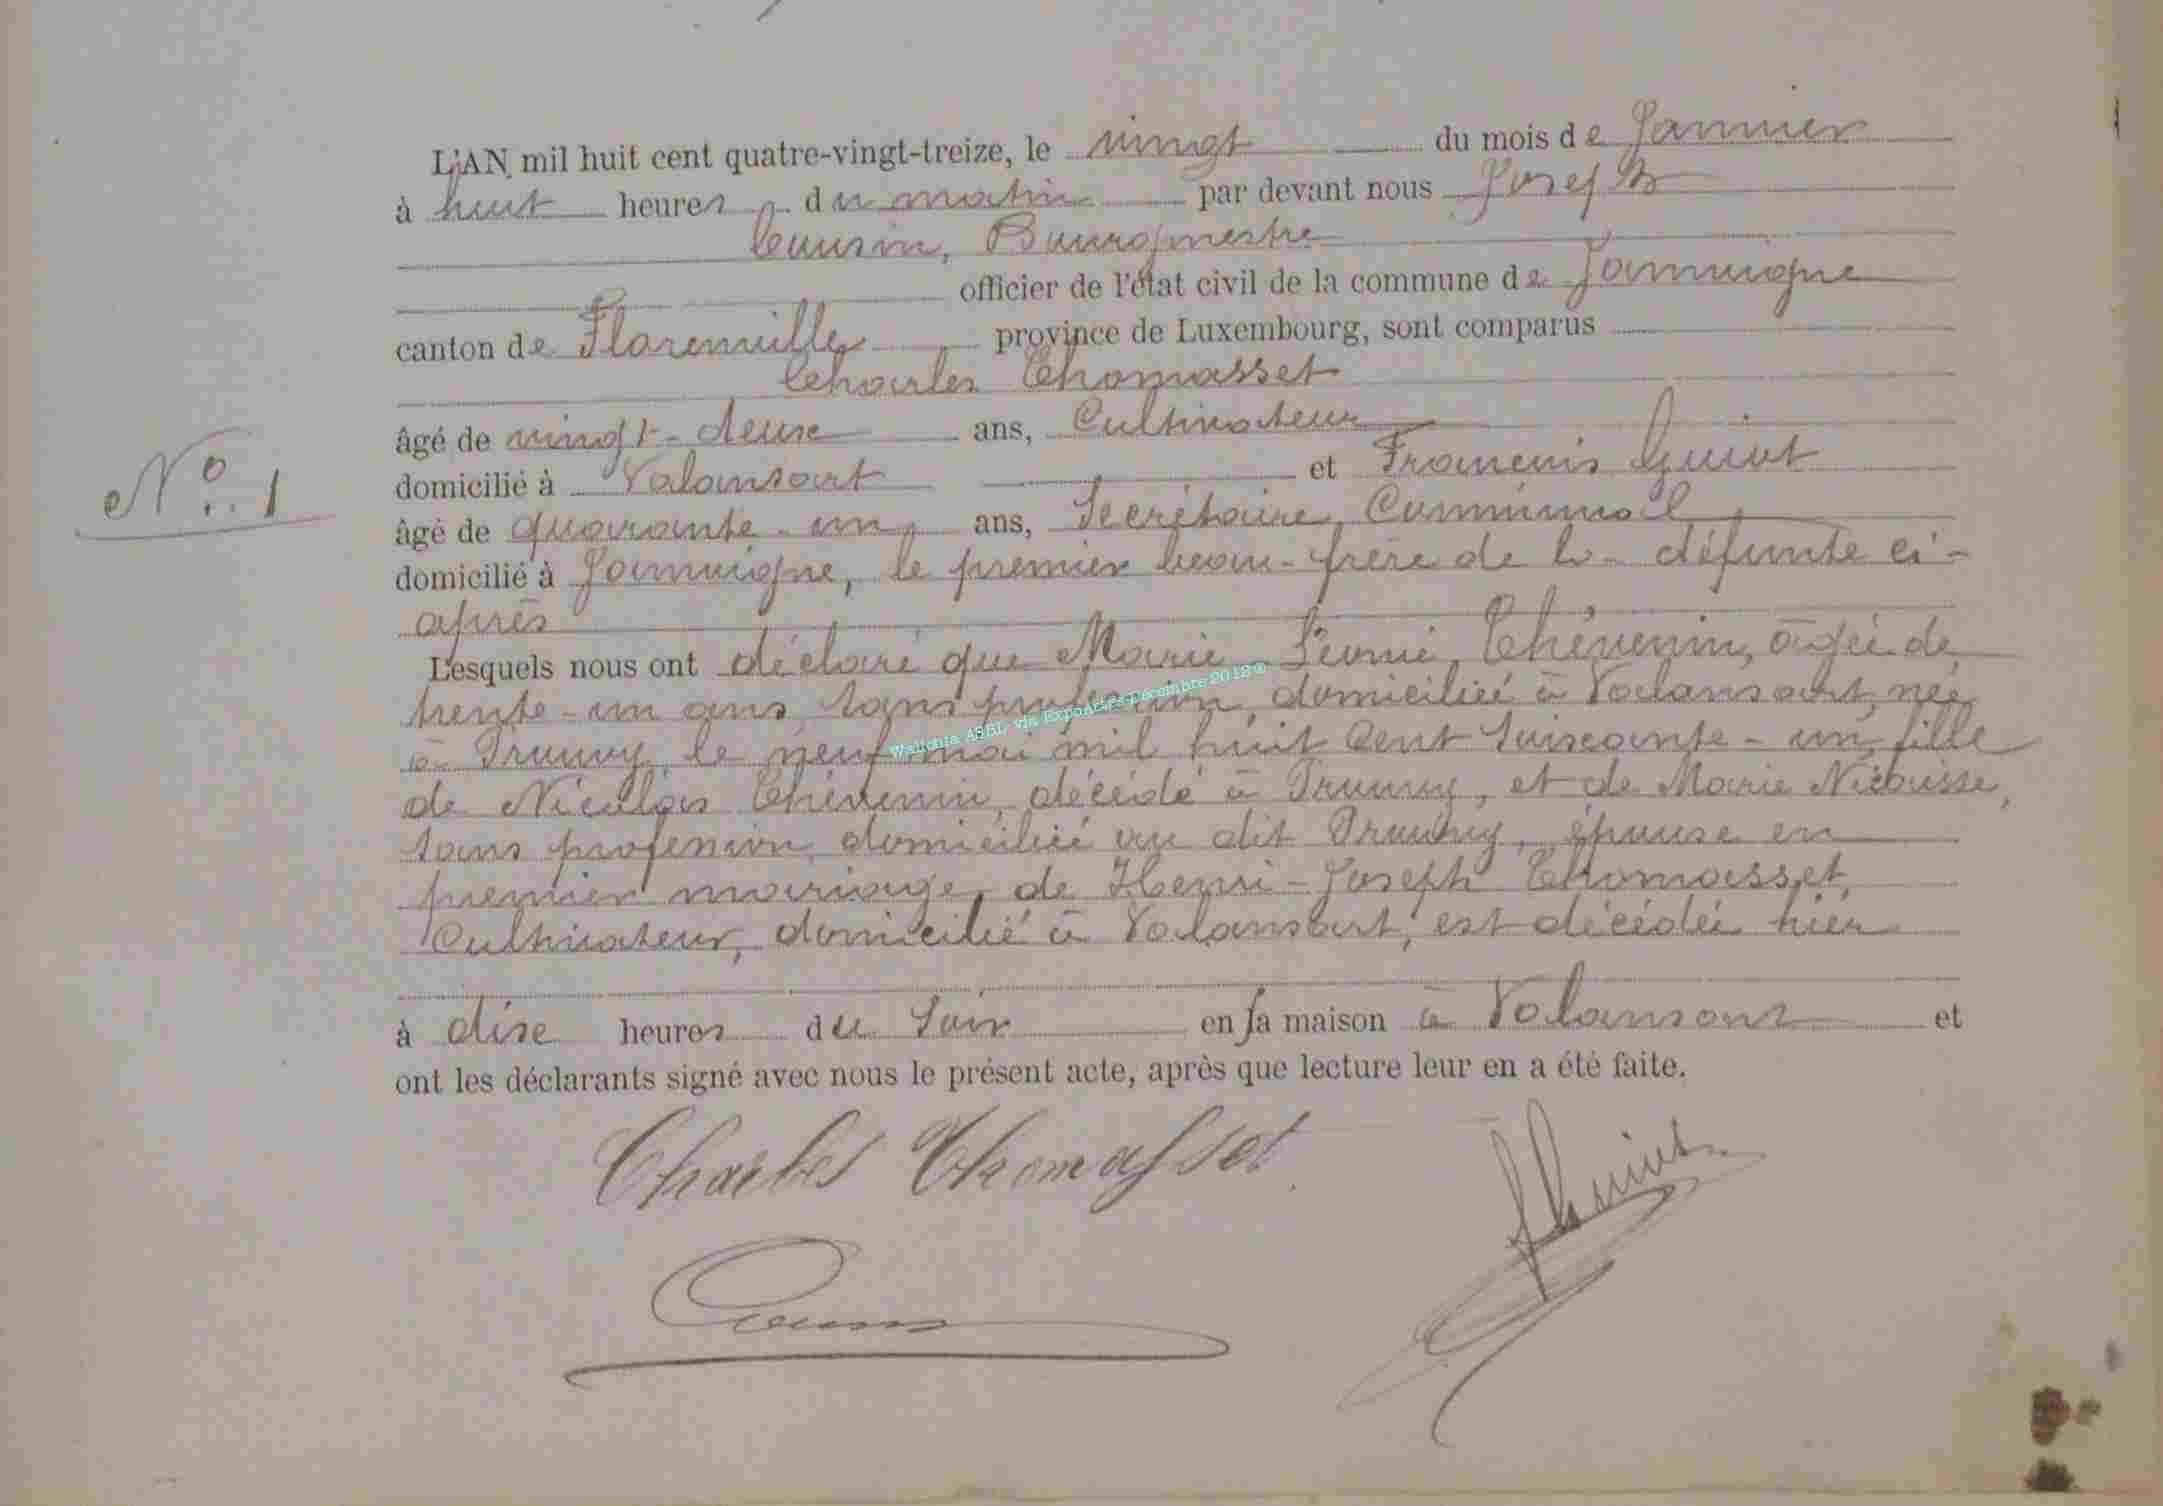 L'AN mil huit cent quatre-vingt-treize, le vingt du mois de Janvier
à huit heures du matin par devant nous Joseph
Cousin, Bourgmestre
officier de l'état civil de la commune de Jamoigne
canton de Florenville province de Luxembourg, sont comparus
Charles Thomasset
âgé de vingt-deux ans, Cultivateur
domicilié à Valansart et François Guiot
N° 1
âgé de quarante-un ans, Secrétaire Communal
domicilié à Jamoigne, le premier beau-frère de la défunte ci-
après
Lesquels nous ont déclaré que Marie Léonie Thévenin, âgée de
trente-un ans, sans profession, domiciliée à Valansart, née
à Prouvy le neuf mai mil huit cent soixante-un, fille
de Nicolas Thévenin, décédé à Prouvy, et de Marie
sans profession, domiciliée au dit Prouvy, épouse en
premier mariage de Henri-Joseph Thomasset,
Cultivateur, domicilié à Valansart, est décédée hier
à dix heures du soir en sa maison à Valansart et
ont les déclarants signé avec nous le présent acte, après que lecture leur en a été faite.
Charles Thomasset
Wallonia ASBL via ExpoActes-Décembre 2018©